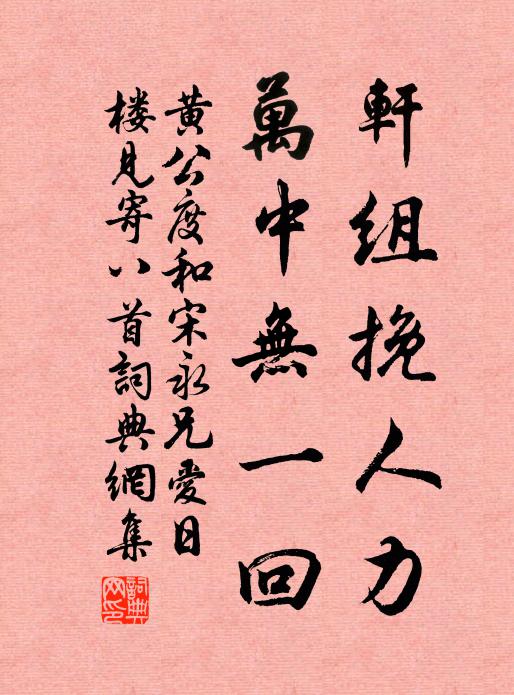 軒組挽人力
萬中無一回
黄公度和宋永兄愛日
楼見寄八首詞典網集
詞典
网印